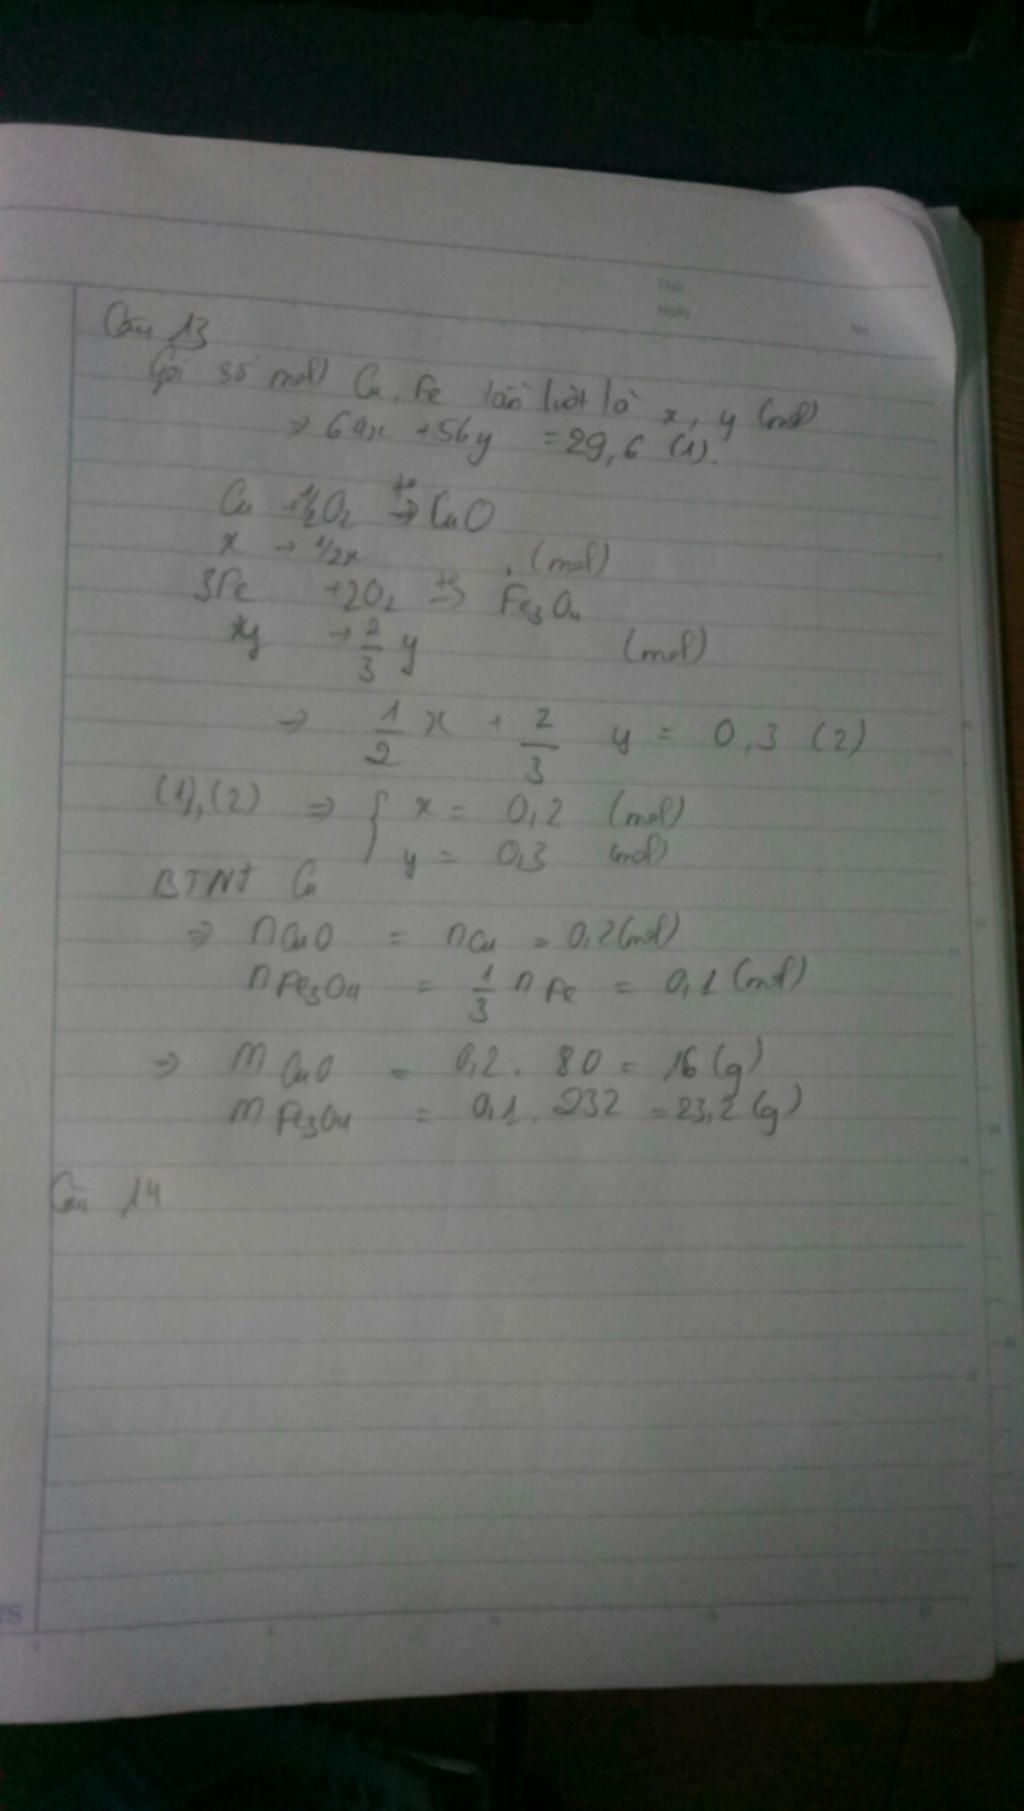 Thứ
Ngày
No.
Câu 13
Gọi số mol Cu, Fe lần lượt là x, y (mol)
⇒ 64x + 56y = 29,6 (1).
Cu + 1/2O₂ →t° CuO
x → 1/2x (mol)
3Fe + 2O₂ →t° Fe₃O₄
y → 2/3 y (mol)
⇒ 1/2 x + 2/3 y = 0,3 (2)
(1), (2) ⇒ { x = 0,2 (mol)
y = 0,3 (mol)
BTNT Cu
⇒ nCuO = nCu = 0,2 (mol)
nFe₃O₄ = 1/3 nFe = 0,1 (mol)
⇒ mCuO = 0,2 . 80 = 16 (g)
mFe₃O₄ = 0,1 . 232 = 23,2 (g)
Câu 14